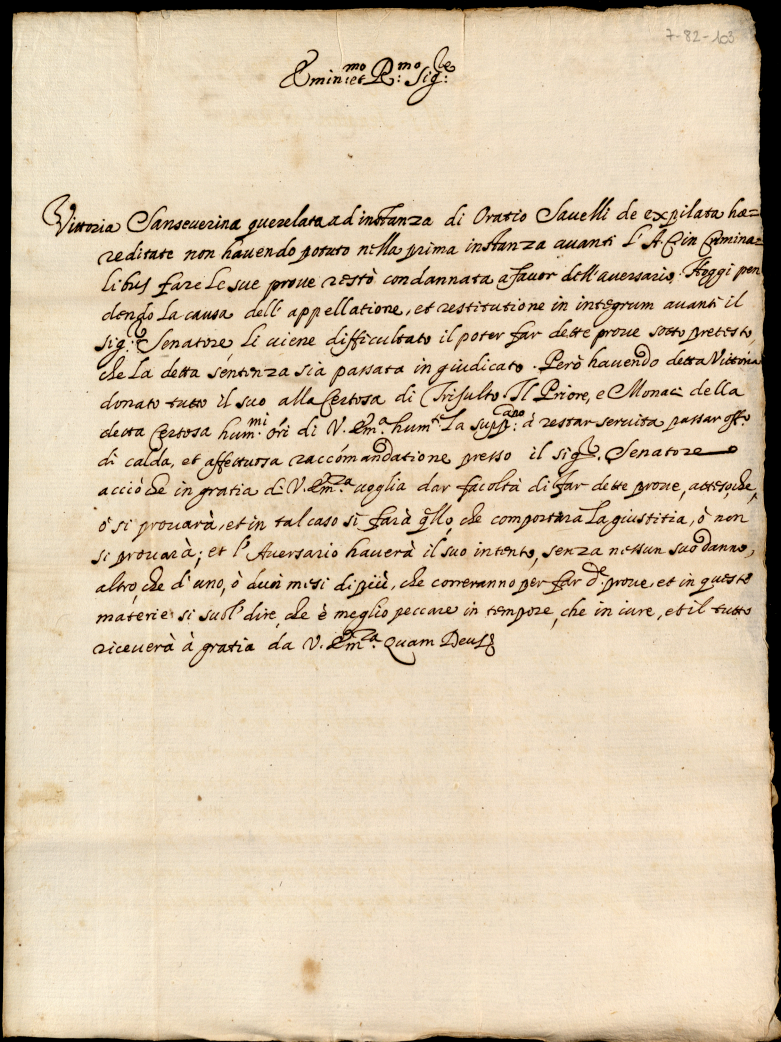 7-82-103
Emin:mo et R:mo Sig:re
Vittoria Sanseverina querelata ad instanza di Oratio Savelli de expilata hæ=
reditate non havendo potuto nella prima instanza avanti l'A.C. in Crimina=
libus fare le sue prove restò condannata a favor dell'aversario. Heggi pen
dendo la causa dell'appellatione, et restitutione in integrum avanti il
sig.re Senatore li viene difficultato il poter far dette prove sotto pretesto,
che la detta sentenza sia passata in giudicato. Però havendo detta Vittoria
donato tutto il suo alla Certosa di Trisulto. Il Priore, e Monaci della
detta Certosa hum:mi ori di V. Em:a hum:te la supp:ano à restar servita passar off:o
di calda, et affettuosa raccomandatione presso il sig.re Senatore
acciò che in gratia di V. Em:za voglia dar facoltà di far dette prove, atteso, che,
ò si provarà, et in tal caso si farà qllo, che comportarà la giustitia, ò non
si provarà; et l'Aversario haverà il suo intento, senza nessun suo danno,
altro, che d'uno, ò duoi mesi di più, che correranno per far d.e prove, et in queste
materie si suol dire, che è meglio peccare in tempore, che in iure, et il tutto
riceverà à gratia da V. Em:za Quam Deus